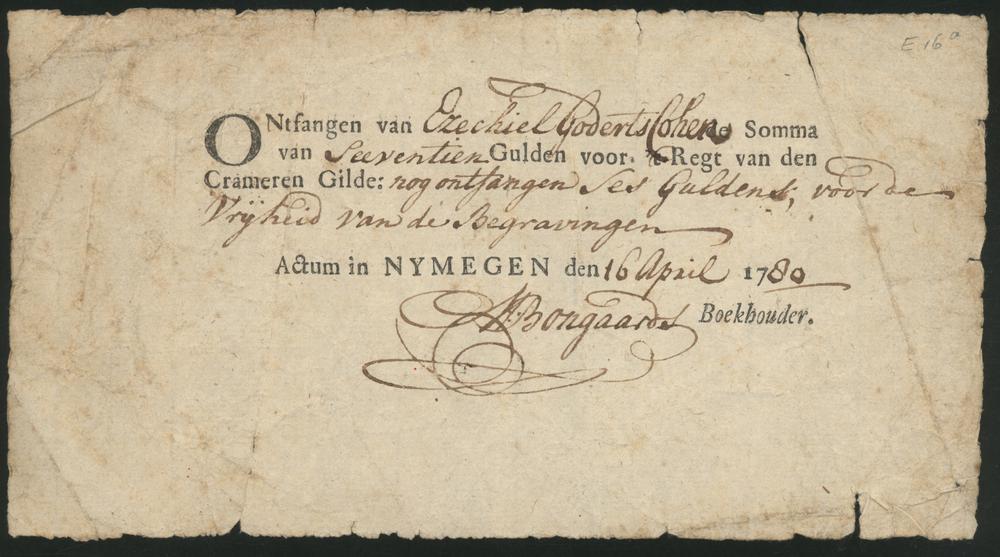 E 16 a
ONtfangen van Ezechiel Goderts Cohen de Somma
van Seeventien Gulden voor 't Regt van den
Crameren Gilde: nog ontfangen Ses Guldens, voor de
Vrijheid van de Begravingen
Actum in NYMEGEN den 16 April 1780
Bongaards Boekhouder.